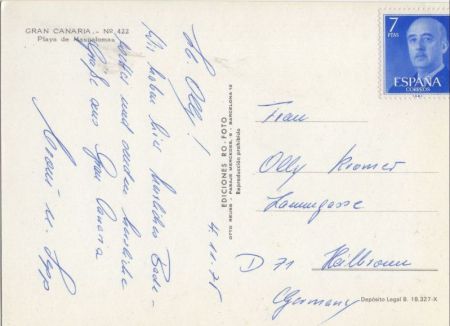 GRAN CANARIA. - Nº 422
Playa de Maspalomas
Lb. Olly!
Wir haben hier herrliches Bade-
wetter und senden herzliche
Grüße aus Gran Canaria
u. Sepp
4.11.75
EDICIONES RO-FOTO
OTTO REUSS - PASAJE MERCEDES, 9 - BARCELONA-12
Reproducción prohibida
7
PTAS
ESPAÑA
CORREOS
Frau
Olly Kromer
Lammgasse
D 71 Heilbronn
(Germany)
Depósito Legal B. 18.327-X